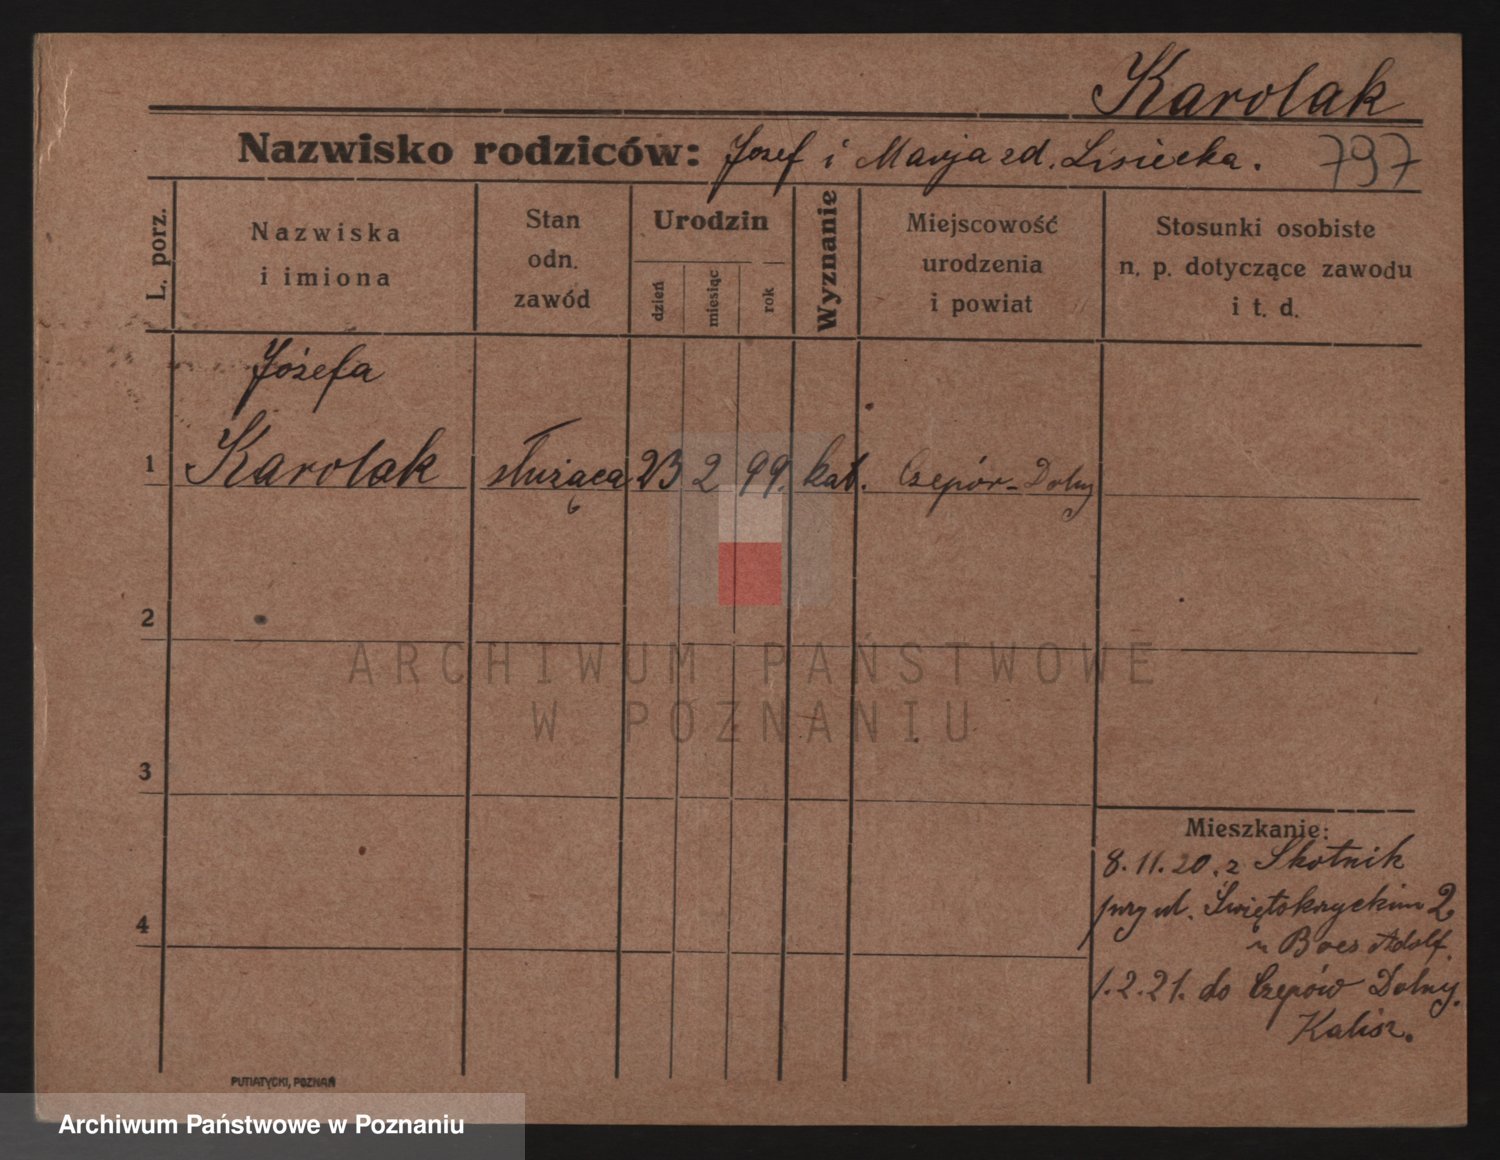 Karolak
Nazwisko rodziców: Jozef i Marja zd. Lisiecka.
797
L. porz.
Nazwiska
i imiona
Stan
odn.
zawód
Urodzin
dzień
miesiąc
rok
Wyznanie
Miejscowość
urodzenia
i powiat
Stosunki osobiste
n. p. dotyczące zawodu
i t. d.
Józefa
1 Karolak służąca 23 2 99. kat. Czepów-Dolny
2
3
4
ARCHIWUM PAŃSTWOWE
W POZNANIU
Mieszkanie:
8.11.20. z Skotnik
przy ul. Świętokrzyckim 2
u Boes Adolf.
1.2.21. do Czepów Dolny.
Kalisz.
PUTIATYCKI, POZNAŃ
Archiwum Państwowe w Poznaniu